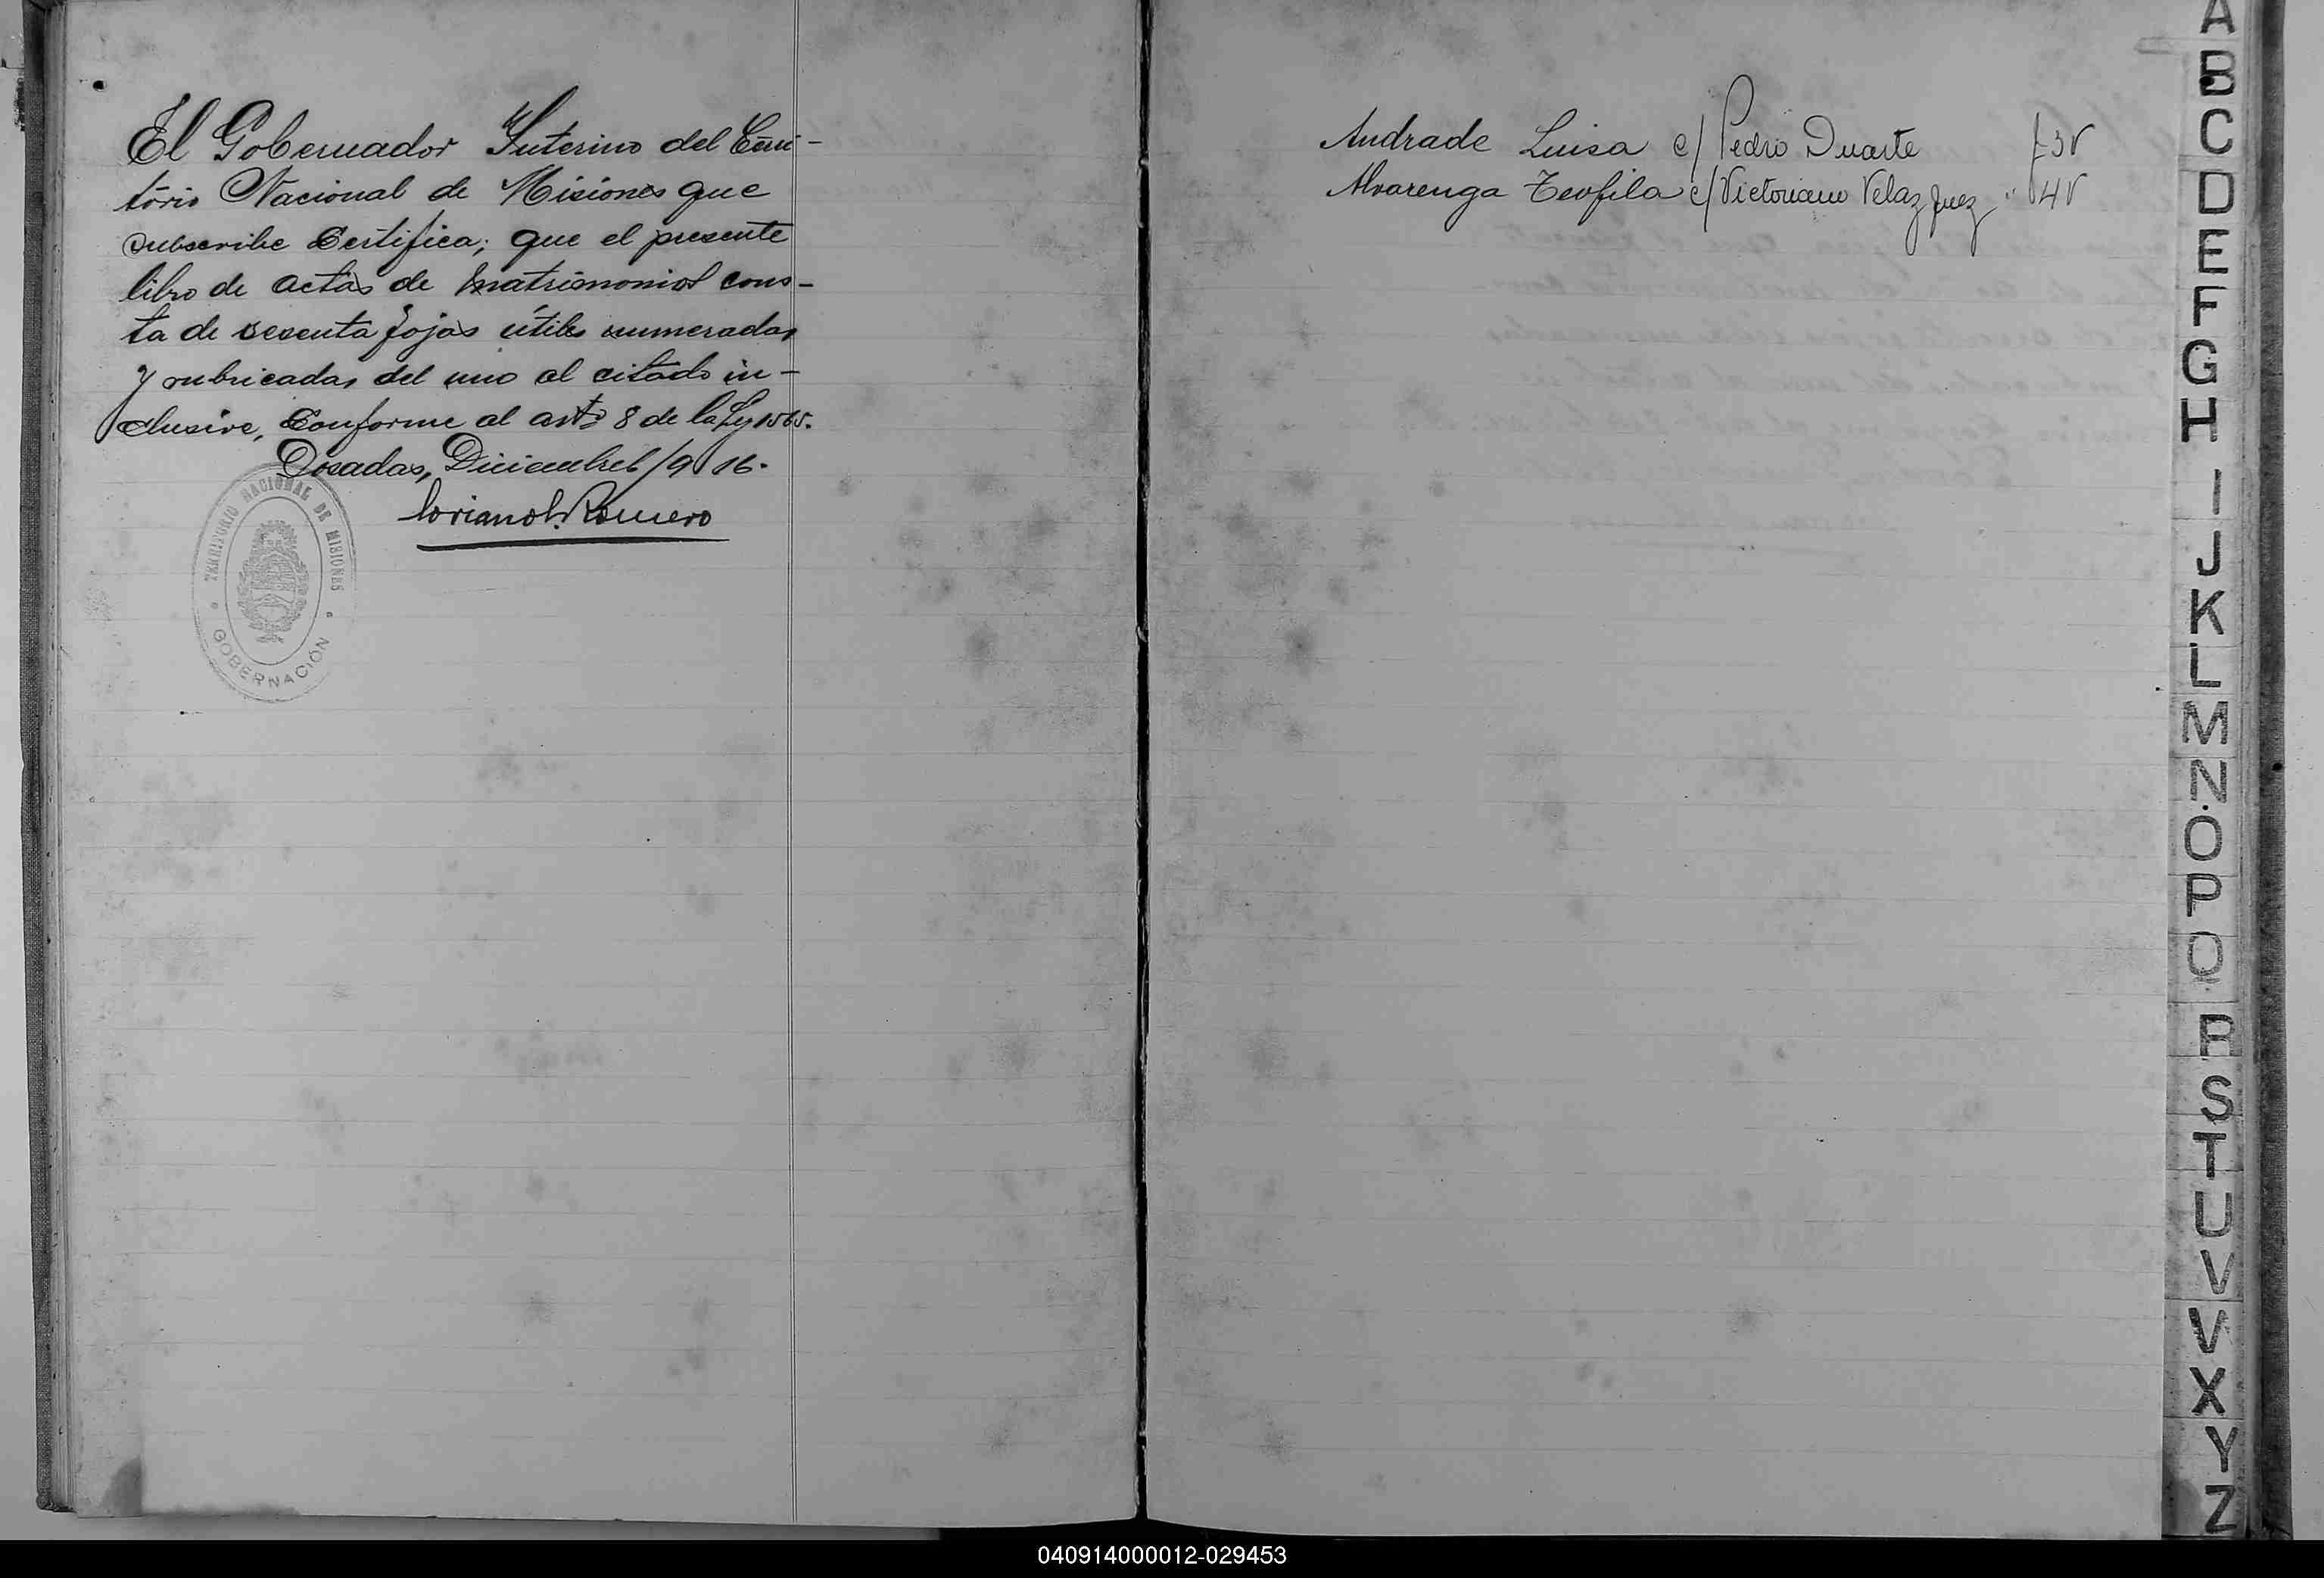 El Gobernador Interino del Terri-
torio Nacional de Misiones que
subscribe Certifica; que el presente
libro de actas de matrimonios cons-
ta de sesenta fojas útiles numeradas
y rubricadas del uno al citado in-
clusive, Conforme al arto 8 de la Ley 1565.
Posadas, Diciembre 1916.
Romero
TERRITORIO NACIONAL DE MISIONES
GOBERNACIÓN
Andrade Luisa c/ Pedro Duarte f 3 v
Alvarenga Teofila c/ Victoriano Velazquez " 4 v
A
B
C
D
E
F
G
H
I
J
K
L
M
N
O
P
Q
R
S
T
U
V
V
X
Y
Z
040914000012-029453